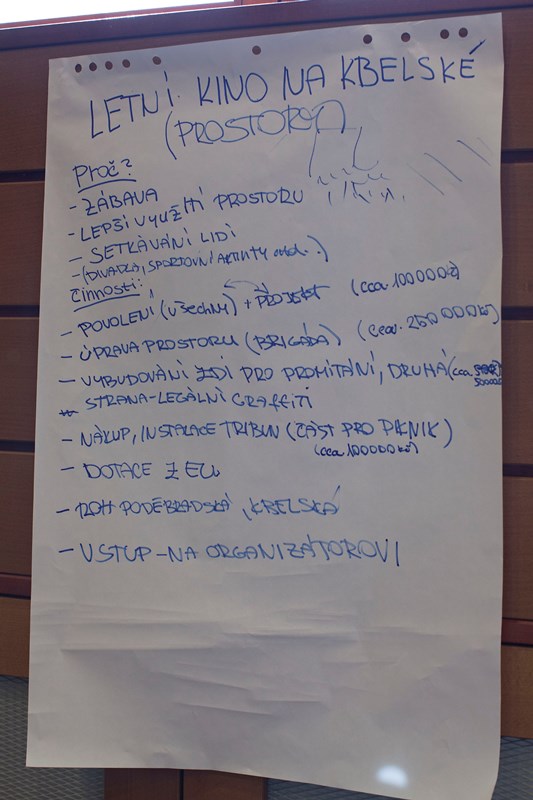 LETNÍ KINO NA KBELSKÉ
(PROSTORY)
Proč?
- ZÁBAVA
- LEPŠÍ VYUŽITÍ PROSTORU
- SETKÁVÁNÍ LIDÍ
- (DIVADLA, SPORTOVNÍ AKTIVITY atd.)
Činnosti:
- POVOLENÍ (VŠECHNY) + PROJEKT (cca 100000
- ÚPRAVA PROSTORU (BRIGÁDA) (cca. 250 000 Kč)
- VYBUDOVÁNÍ ZDI PRO PROMÍTÁNÍ, DRUHÁ (cca
STRANA-LEGÁLNÍ GRAFFITI
- NÁKUP, INSTALACE TRIBUN (ČÁST PRO PIKNIK)
(cca 100000 Kč)
- DOTACE Z EU
- ROH PODĚBRADSKÁ, KBELSKÁ
- VSTUP-NA ORGANIZÁTOROVI